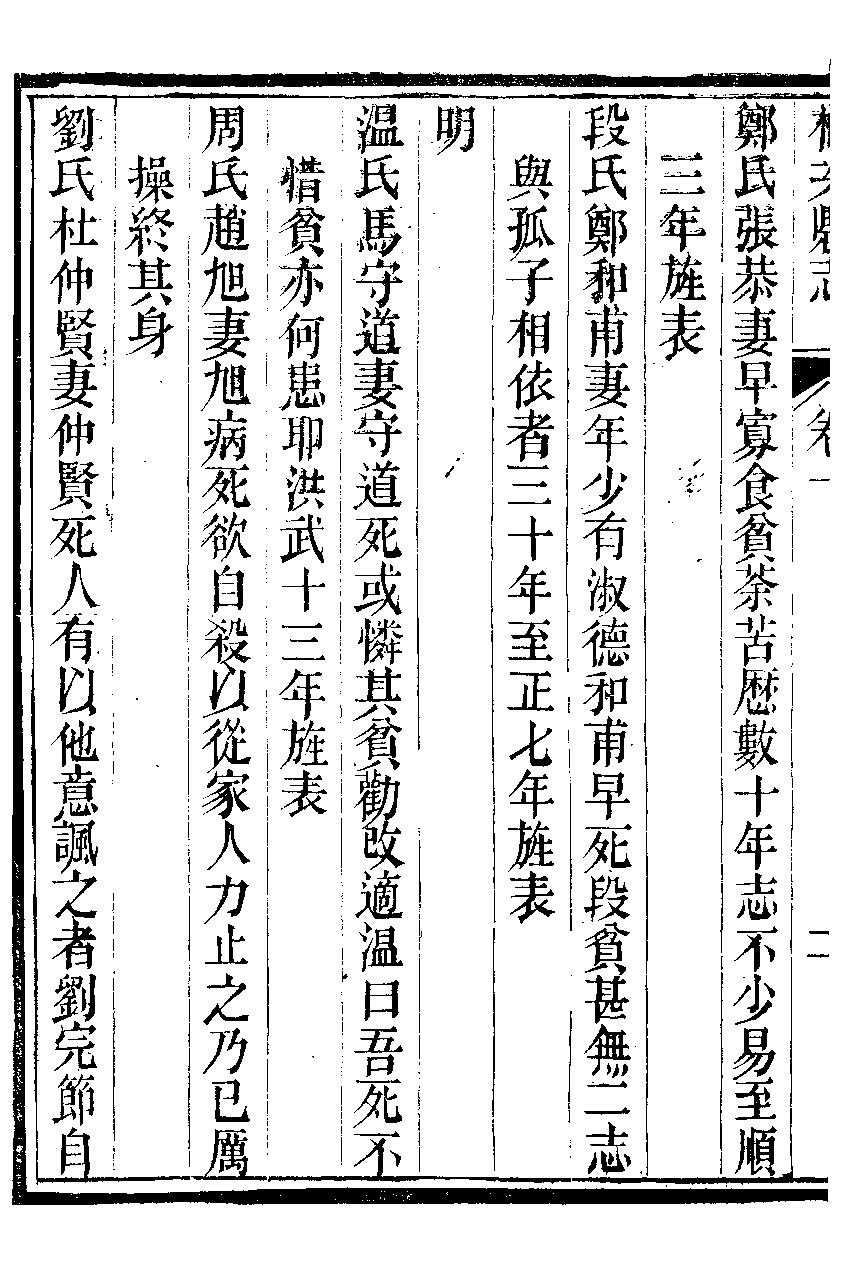 鄭氏張恭妻早寡食貧荼苦歷數十年志不少易至順
三年旌表
段氏鄭和甫妻年少有淑德和甫早死段貧甚無二志
與孤子相依者三十年至正七年旌表
明
温氏馬守道妻守道死或憐其貧勸改適温曰吾死不
惜貧亦何患耶洪武十三年旌表
周氏趙旭妻旭病死欲自殺以從家人力止之乃已厲
操終其身
劉氏杜仲賢妻仲賢死人有以他意諷之者劉完節自